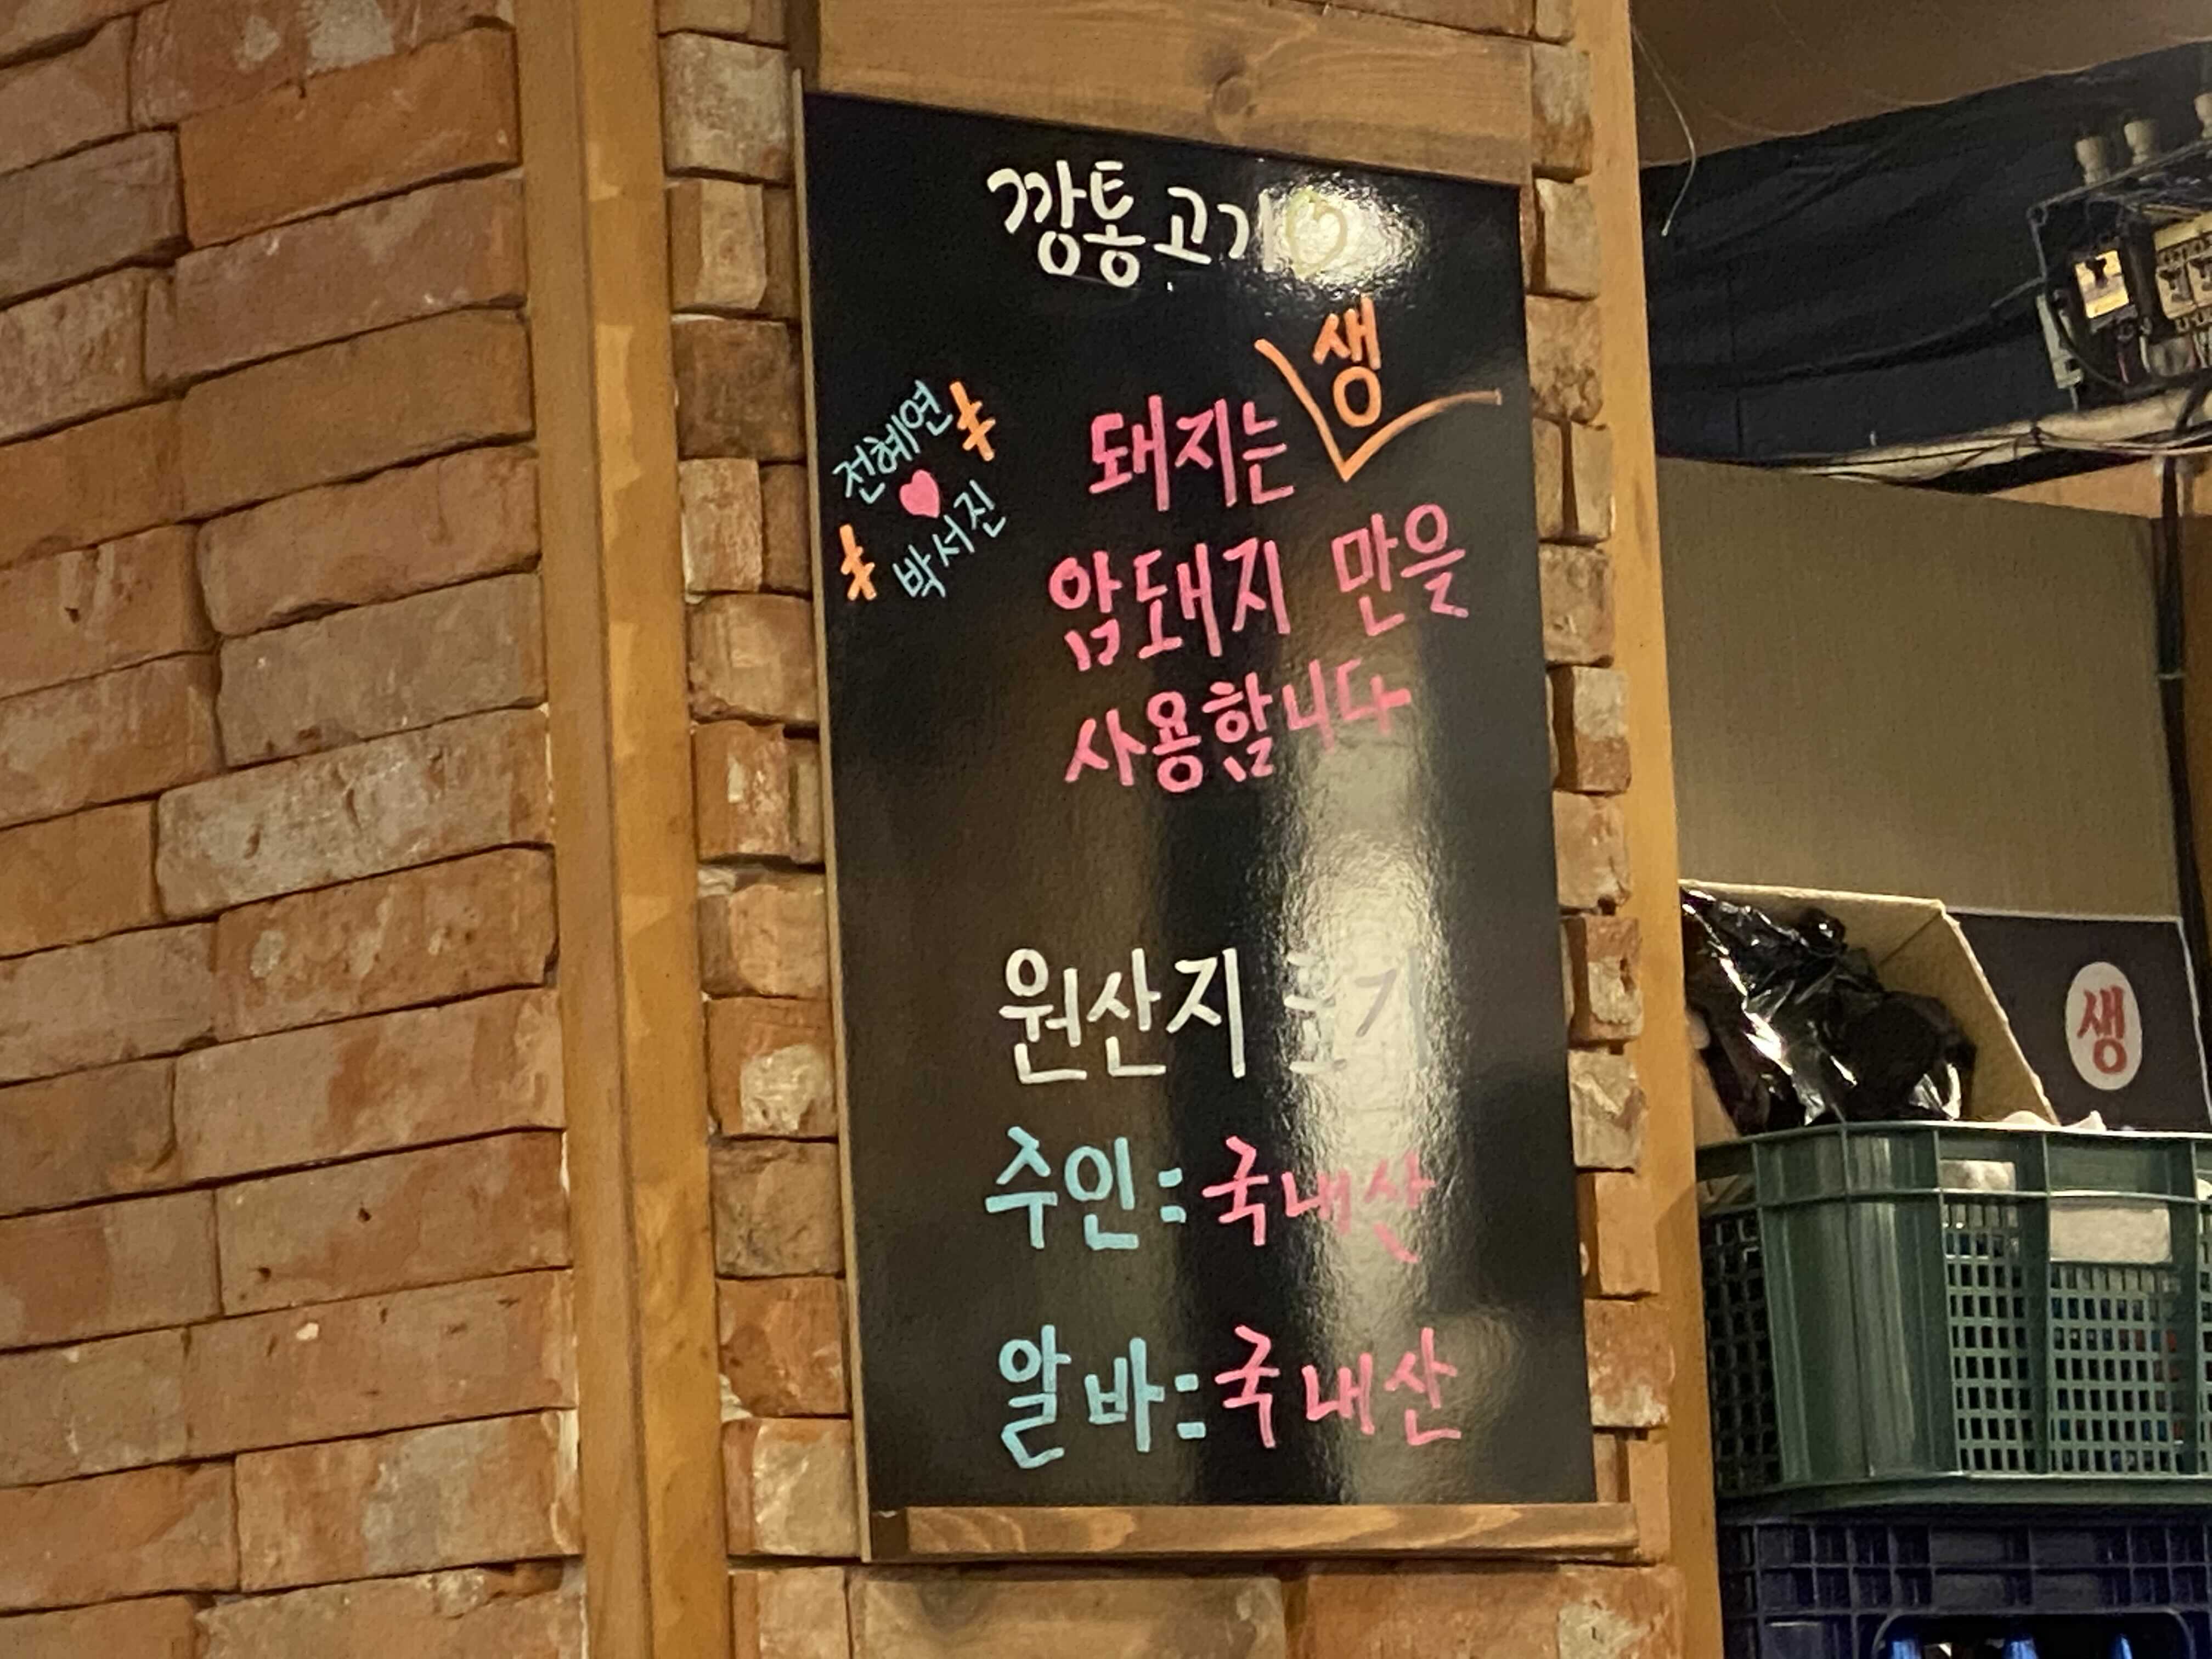 깡통고기
생
돼지는
암돼지 만을
사용합니다
전혜연
♥
박서진
원산지 표기
주인 = 국내산
알바 = 국내산
생